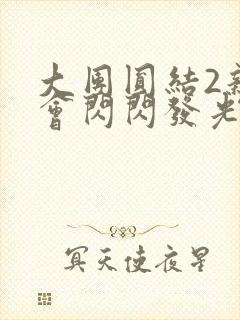 大团圆結2新
會閃閃發光
冥天使夜星